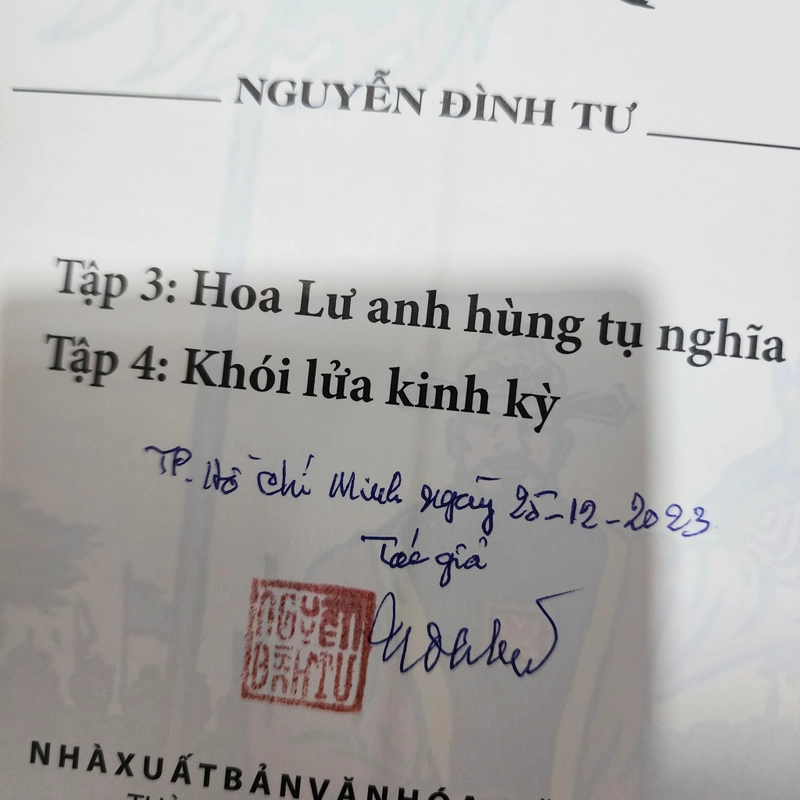 NGUYỄN ĐÌNH TƯ
Tập 3: Hoa Lư anh hùng tụ nghĩa
Tập 4: Khói lửa kinh kỳ
TP. Hồ Chí Minh ngày 25-12-2023
Tác giả
NGUYỄN
ĐÌNH TƯ
NHÀ XUẤT BẢN VĂN HÓA